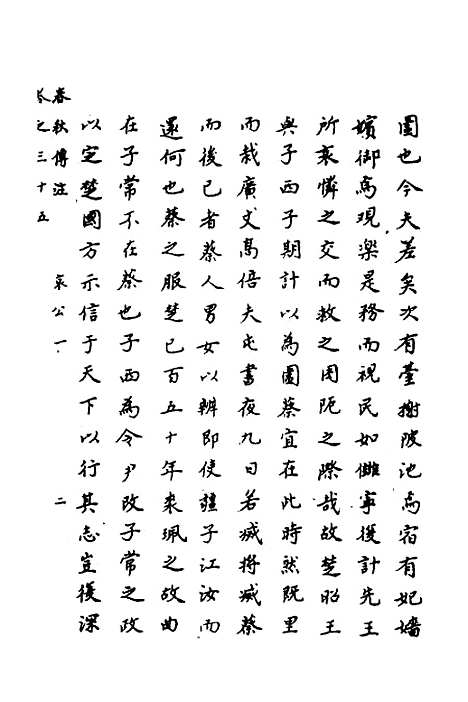 圉也今夫差矣次有臺榭陂池焉宿有妃嬙
嬪御焉現樂是務而視民如讎寧復計先王
所哀憐之交而救之困阨之際哉故楚昭王
與子西子期計以為圍蔡宜在此時然既里
而栽廣丈高倍夫屯晝夜九日若滅將滅蔡
而後已者蔡人男女以辨即使疆于江汝而
還何也蔡之服楚已百五十年裘珮之故曲
在子常不在蔡也子西為令尹改子常之政
以定楚國方示信于天下以行其志豈復深
春秋傳注 哀公一 二
卷之三十五